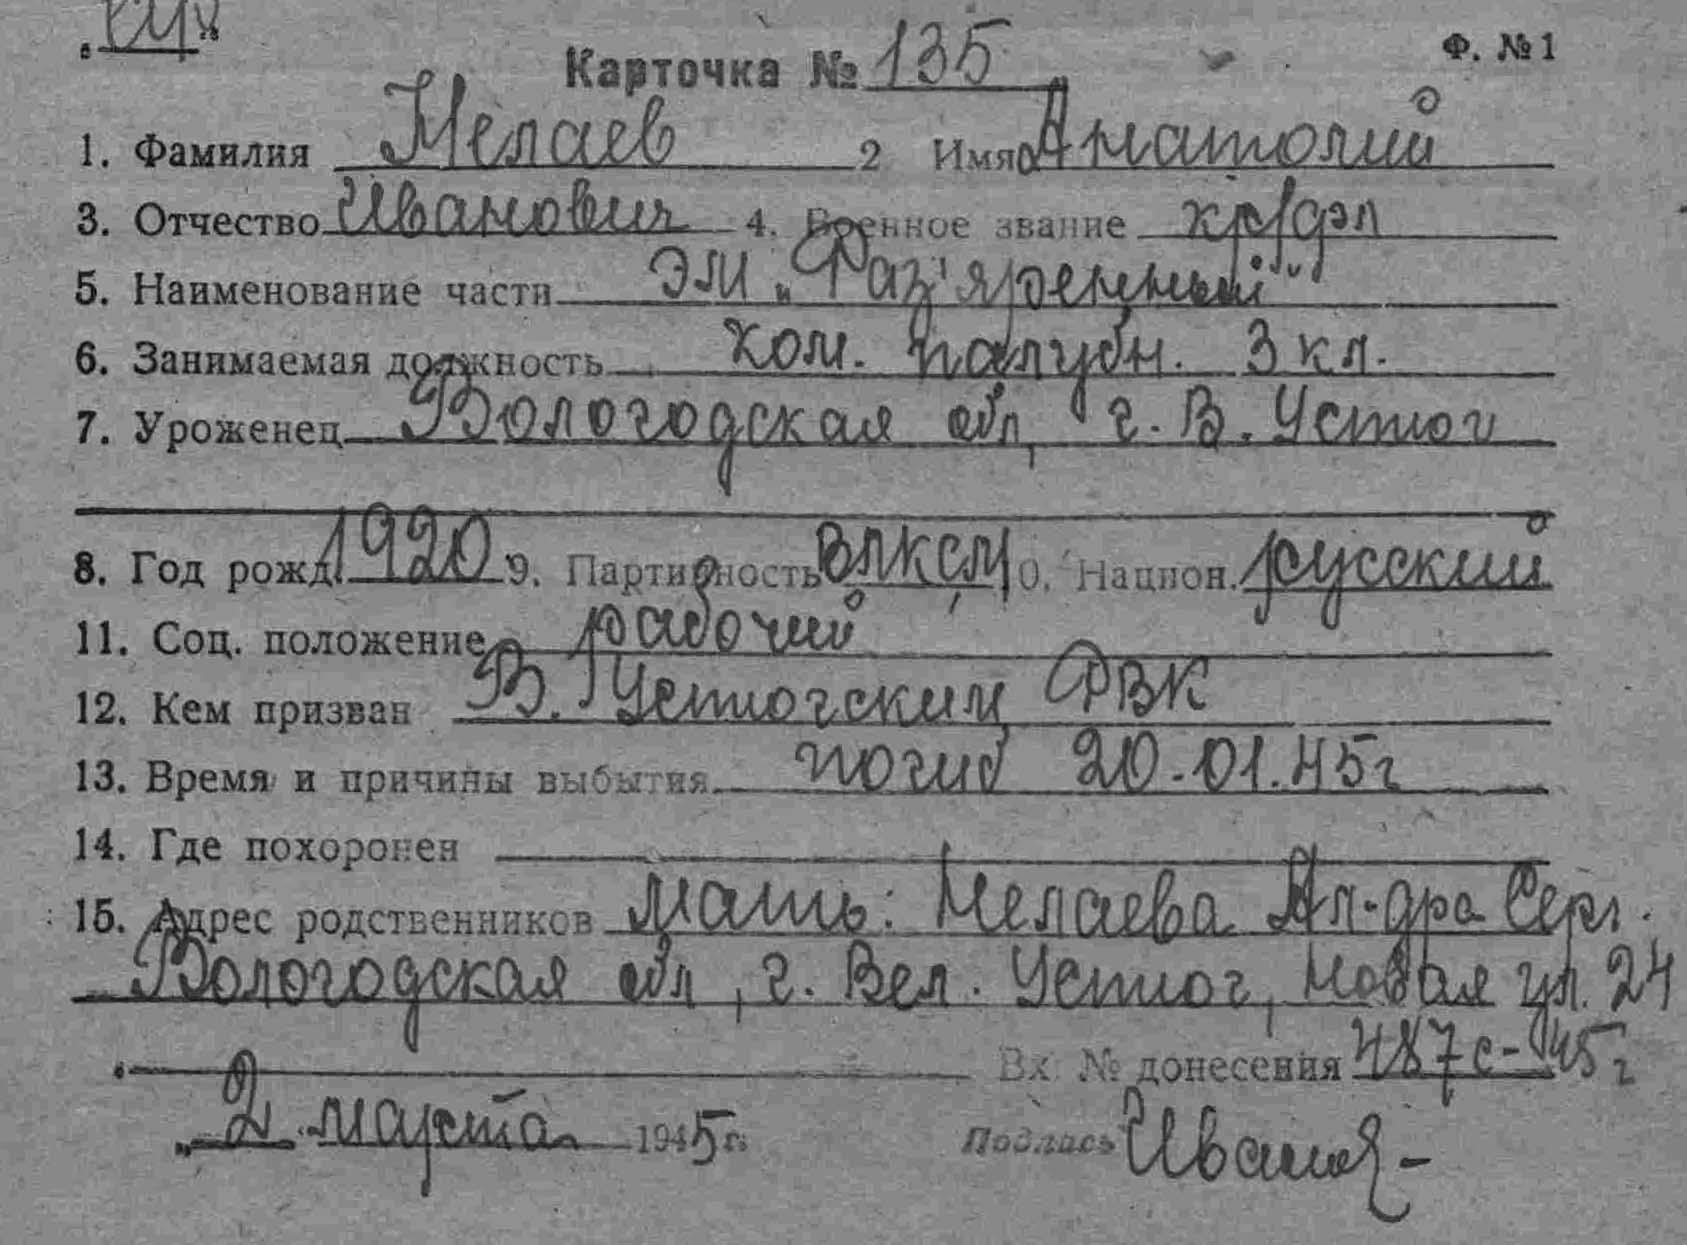 Карточка № 135 Ф. №1
1. Фамилия Мелаев 2 Имя Анатолий
3. Отчество Иванович 4. Военное звание кр/фл
5. Наименование части ЭМ „Раз'яренный"
6. Занимаемая должность ком. палубн. 3 кл.
7. Уроженец Вологодская обл, г. В. Устюг
8. Год рожд. 1920 9. Партийность ВЛКСМ 10. Национ. русский
11. Соц. положение рабочий
12. Кем призван В. Устюгским РВК
13. Время и причины выбытия погиб 20.01.45г
14. Где похоронен
15. Адрес родственников мать: Мелаева Ал-дра Серг.
Вологодская обл, г. Вел. Устюг, Новая ул. 24
Вх. № донесения 487с-45г
„2" марта 1945г. Подпись